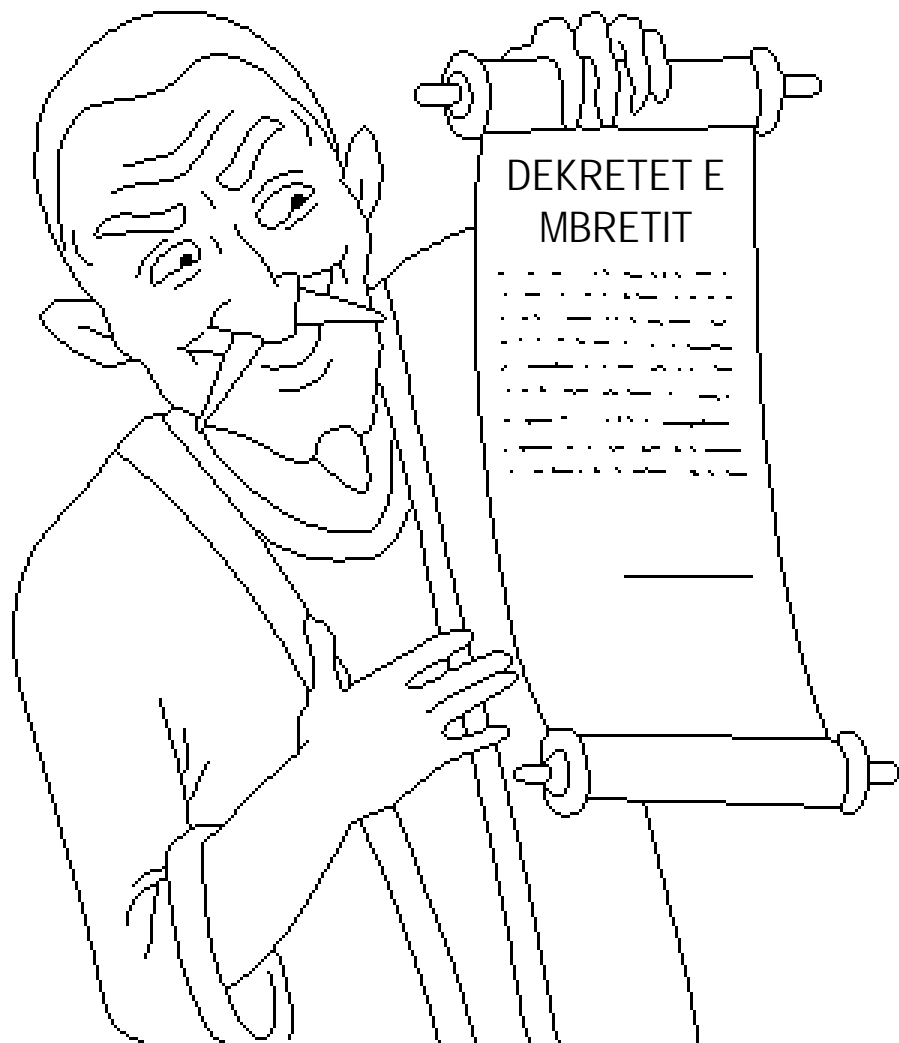 DEKRETET E
MBRETIT